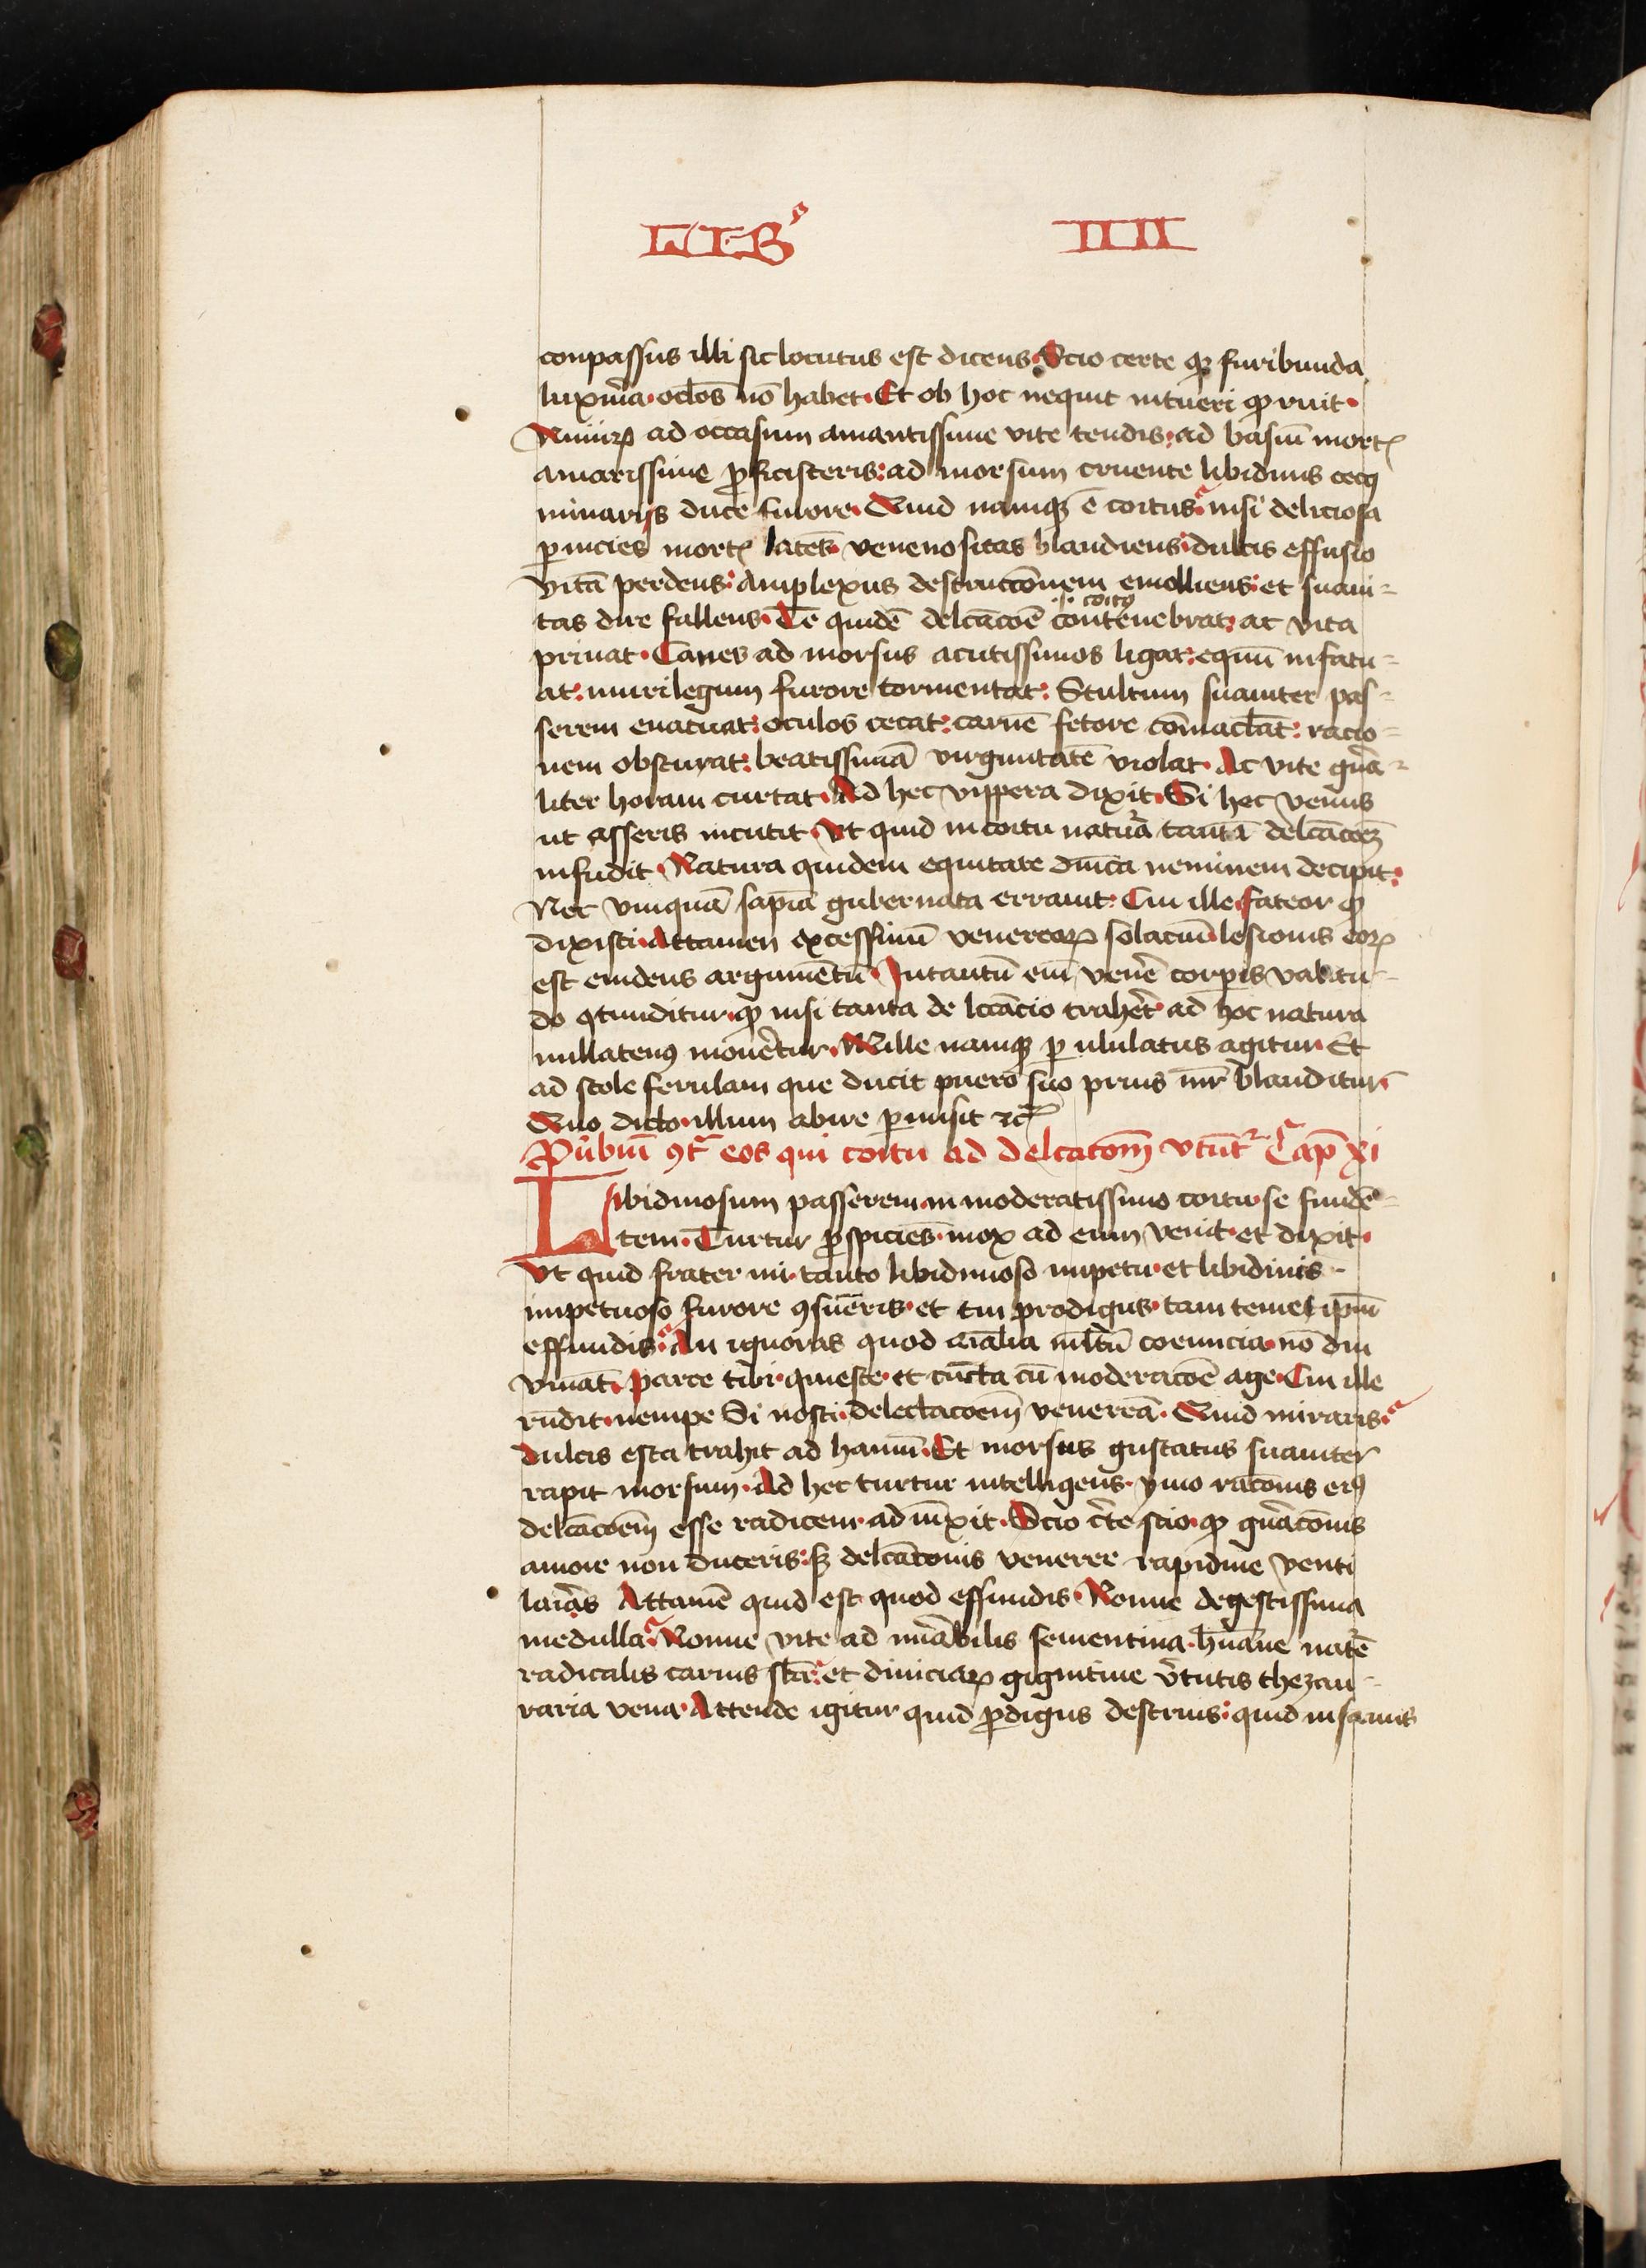 LIBer IIII
conpassus illi sic locutus est dicens Scio certe qz furibunda
luxur̄ia oclōs nō habet Et ob hoc nequit intueri qd ruit
ad occasum amantissime vite tendis ad basiū mortꝭ
amarissime ꝓficisceris ad morsum cruente libidinis
duce furore Quid namqꝫ ē coitus nisi deliciosa
ꝑnicies mortꝭ latēs venenositas blandiens dulcis effusio
vitā perdens Amplexus destruccōnem emolliens et suaui-
tas dire fallens Te quidē delcācōe
coitꝰ
contenebrat ac vita
priuat Canes ad morsus acutissimos ligat equū infatu-
at murilegum furore tormentat Stultum suauiter pas-
serem euacuat oculos cecat carnē fetore cōmaclāt racio-
nem obscurat beatissimā virginitatē violat Ac vite gn̄a-
liter horam curtat Ad hec vippera dixit Si hec venus
ut asseris incutit Vt quid in coitu natura tantā delcācōꝫ
infudit Natura quidem equitate diuīa neminem decipit
Nec vnquā sapīa gubernata errauit Cui ille fateor qd
dixisti Attamen excessiuū venereoꝝ solaciū lesionis eoꝝ
est euidens argumētū Intantū em̄ venē corpis valitu-
do ꝯtunditur qd nisi tanta de lccācio trahet̄ ad hoc natura
nullatenꝰ mouet̄ur Mille namqꝫ ꝑ ululatus agitur Et
ad scole ferulam que ducit puero suo prius mr̄ blanditur
Quo dicto illum abire ꝑmisit ⁊c̄
Pūbiū ꝯt̄ eos qui coitu ad delcatōm vtūt᷑ Cap̄ xi
Libidinosum passerem in moderatissimo coitu se fundē-
tem Turtur ꝓspiciēs mox ad eum venit et dixit
Vt quid frater mi tanto libidinoso impetu et libidinis
impetuoso furore ꝯsuēris et tui prodigus tam temet ipm̄
effundis An ignoras quod aīalia ml̄tū coeuncia nō diu
viuāt parce tibi quiesce et cūcta cū moderacōe age Cui ille
rn̄dit nempe Si nosti delectacoem̄ venereā Quid miraris
dulcis esca trahit ad hamū Et morsus gustatus suauiter
rapit morsum Ad hec turtur intelligens ymo racōnis
delcācoem̄ esse radicem adiūxit Scio c̄te scio qd gn̄acōnis
amore non duceris sꝫ delcatōnis veneree rapidine venti
Attamē quid est quod effundis Nonne degestissima
medulla Nonne vite ad mīabilis sementina hūane natē
radicalis carnis et diuiciaꝝ gignitiue v̄tutis thezau-
raria vena Attende igitur quid ꝓdigus destruis quid insanus